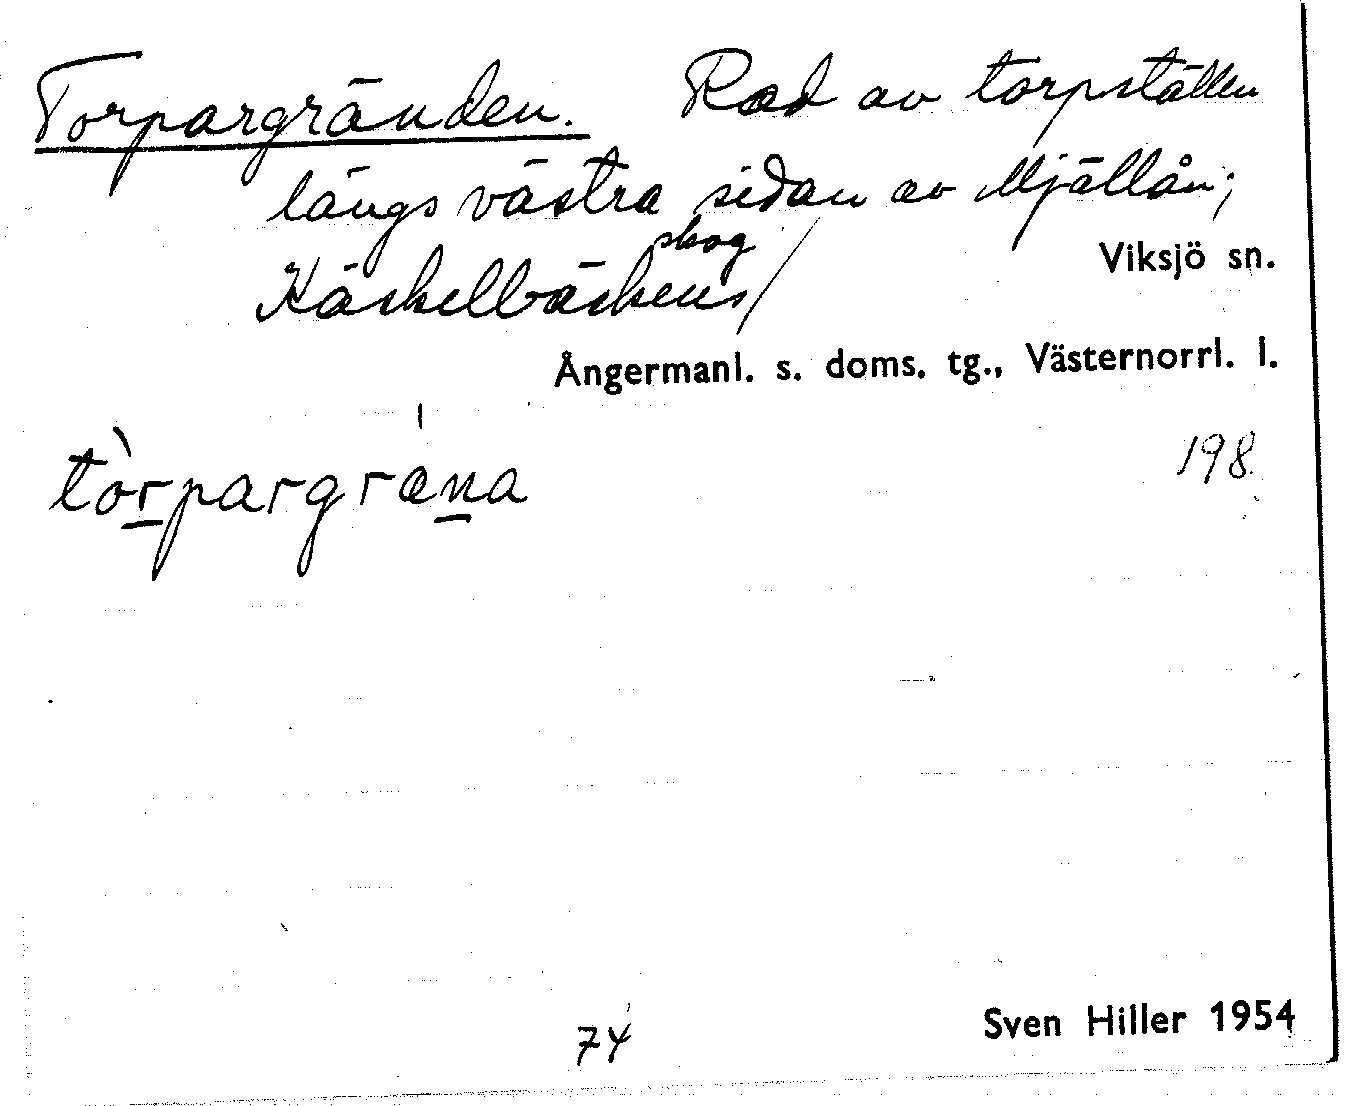 Torpargränden. Rad av torpställen
längs västra sidan av Mjällån;
skog
Käckelbäckens/
Viksjö sn.
Ångermanl. s. doms. tg., Västernorrl. l.
tòrpargrána
198
74
Sven Hiller 1954